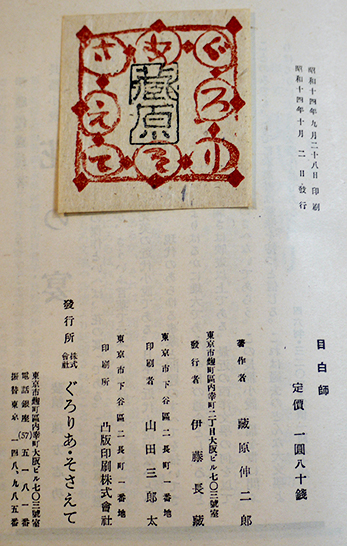 昭和十四年九月二十八日印刷
昭和十四年十月二日發行
ぐろり
あ
藏原
そ
さえて
目白師
定價 一圓八十錢
著作者 藏原伸二郎
東京市麴町區內幸町二丁目大阪ビル七〇三號室
發行者 伊藤長藏
東京市下谷區二長町一番地
印刷者 山田三郎太
東京市下谷區二長町一番地
印刷所 凸版印刷株式會社
發行所 株式會社 ぐろりあ・そさえて
東京市麴町區內幸町大阪ビル七〇三號室
電話銀座(57)五一八一番
振替東京一四八、九八五番